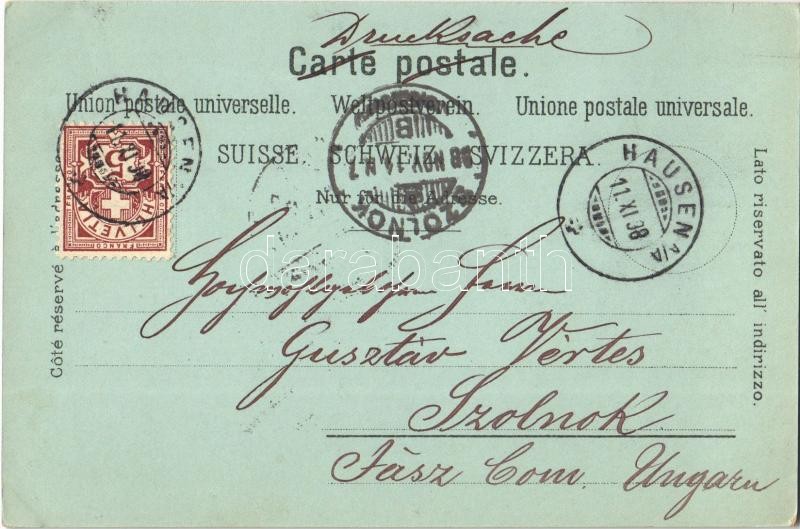 Drucksache
Carte postale.
Union postale universelle. Weltpostverein. Unione postale universale.
SUISSE. SCHWEIZ. SVIZZERA.
Nur für die Adresse.
Côté réservé à l'adresse.
Lato riservato all' indirizzo.
HAUSEN
5
HELVETIA
FRANCO
SZOLNOK
98 NOV. 14 N. 7
B
HAUSEN A/A
11.XI.98
darabanth
Hochwohlgeboren Herrn
Gusztáv Vértes
Szolnok
Jász Com. Ungarn